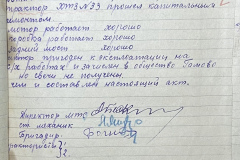 трактор ХТЗ №33 прошел капитальный
ремонтом
мотор работает хорошо
коробка работает хорошо
задний мост хорошо
трактор пригоден к эксплоатации на
с/х работах и зачислен в общество
но свечи не получены,
чем и составлен настоящий акт.
Директор мтс
ст механик
Бригадир